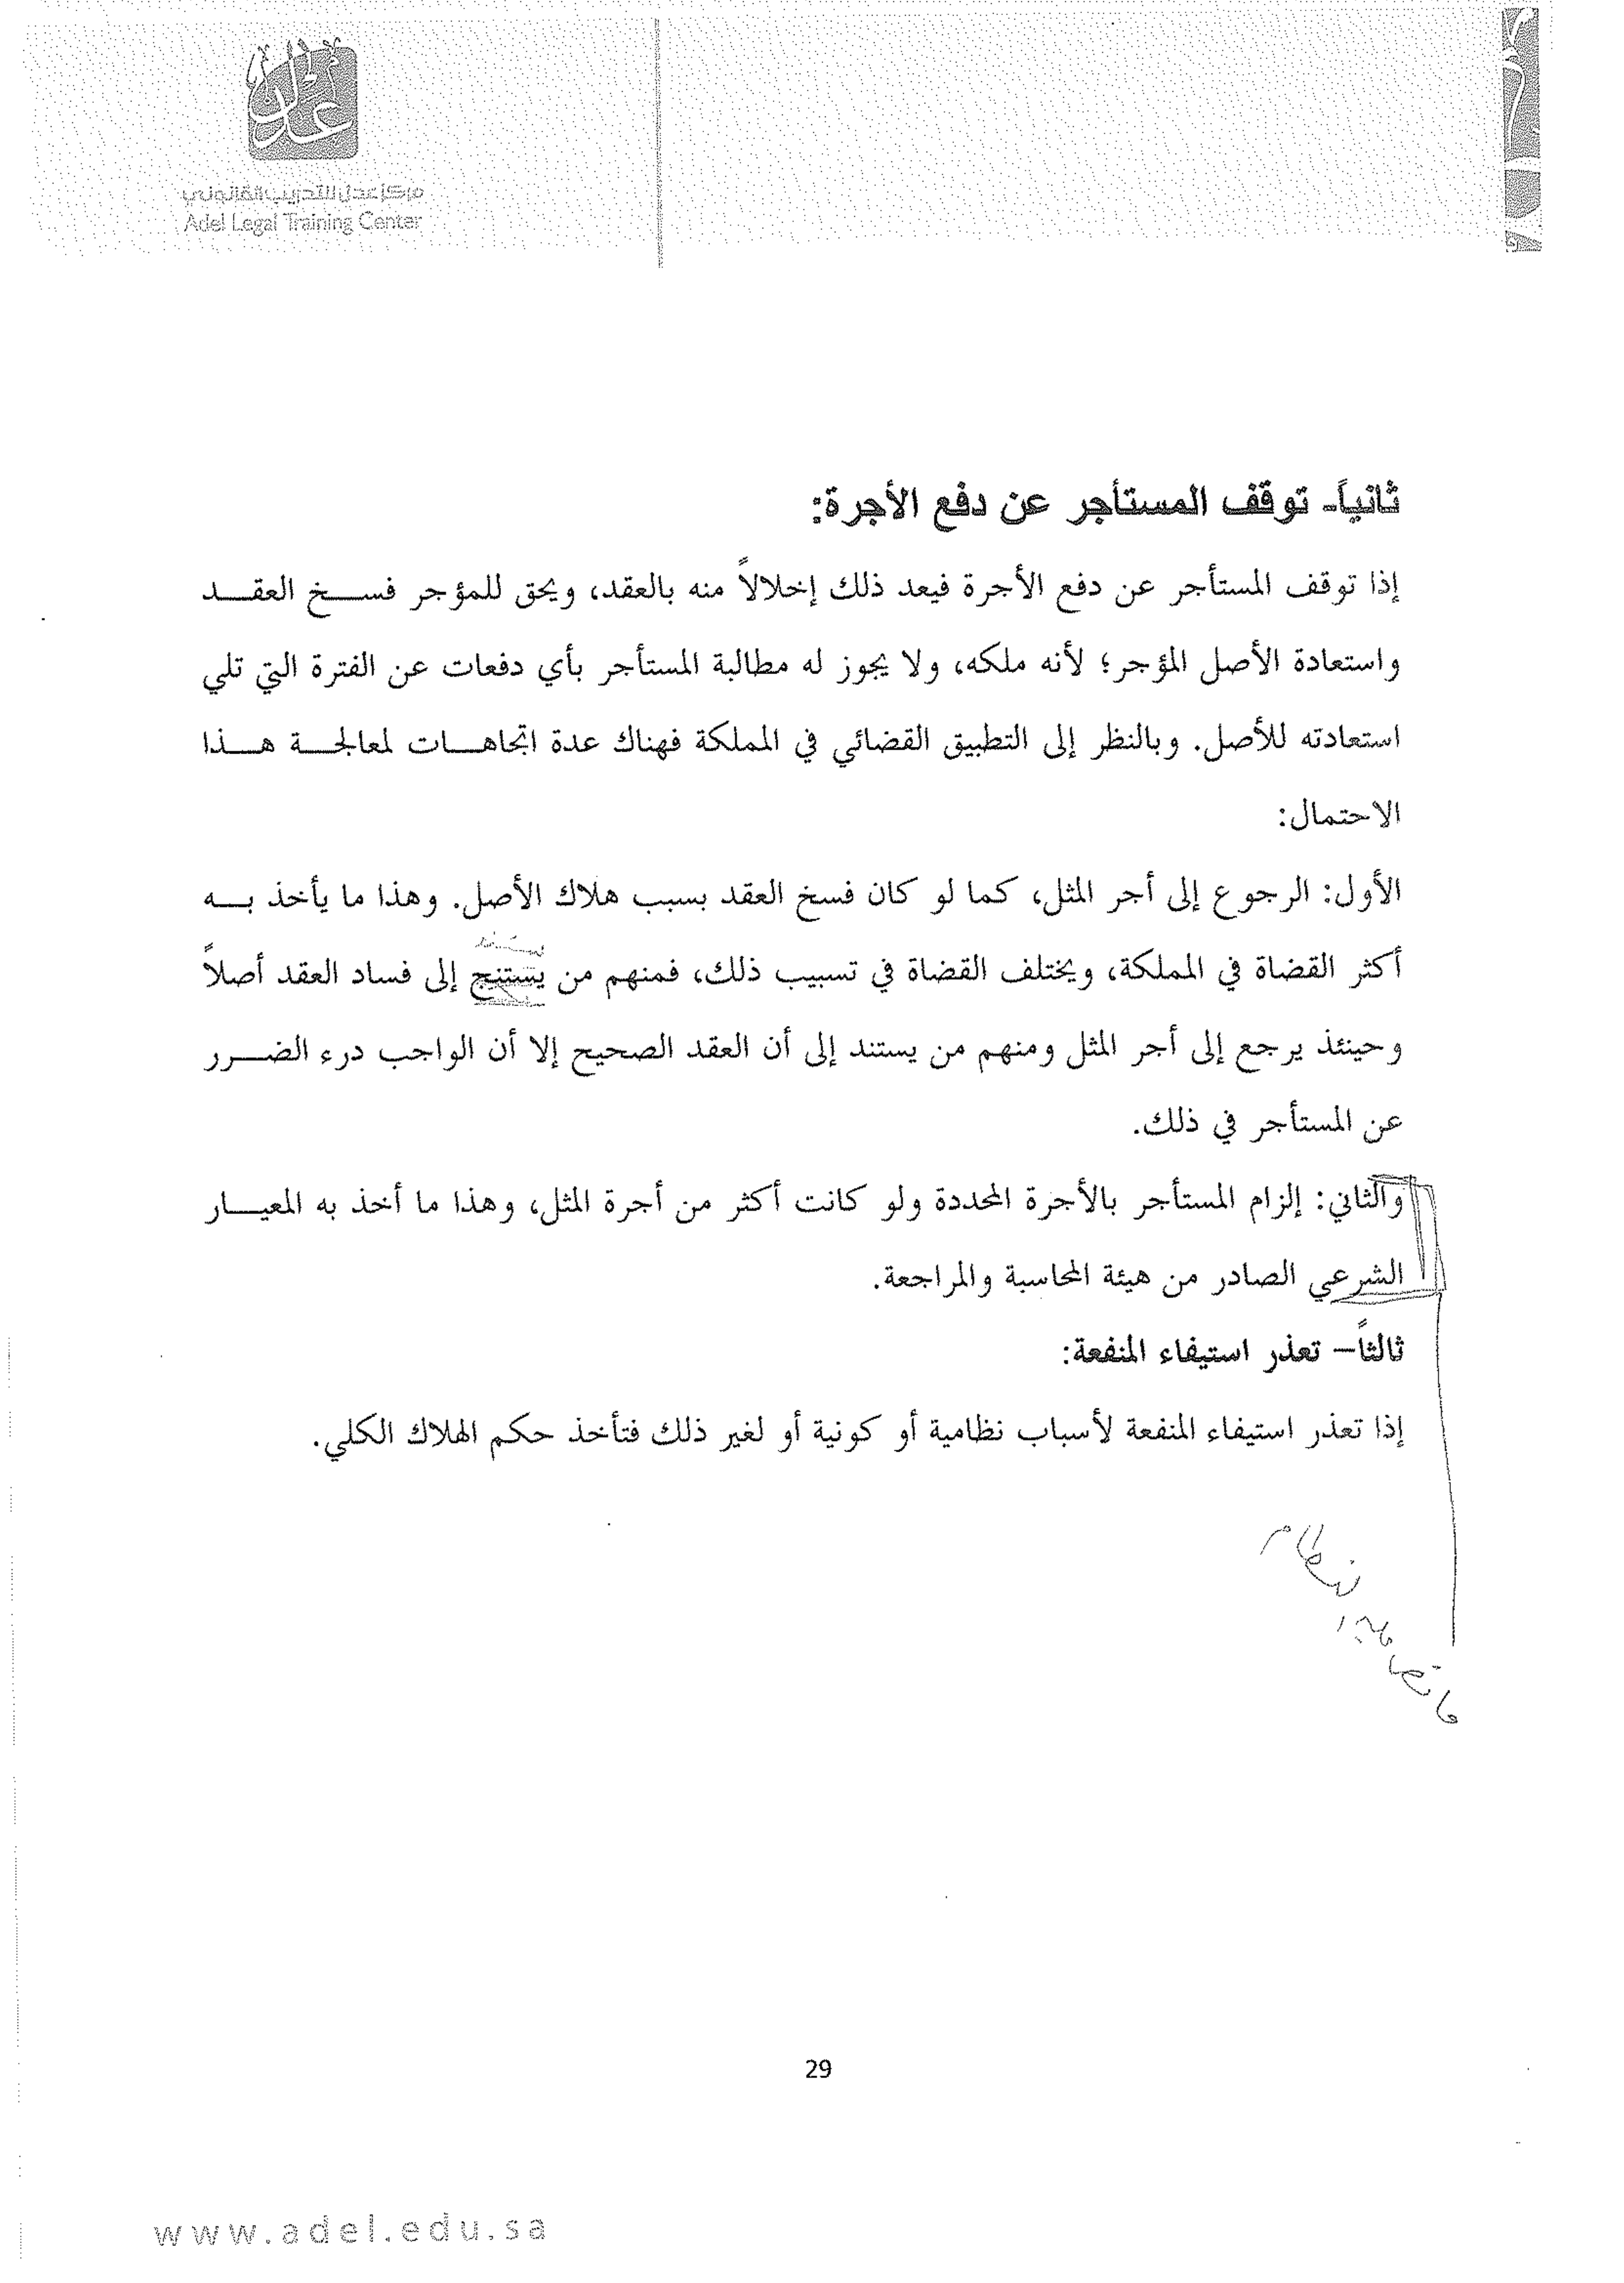 عدل
مركز عدل للتدريب القانوني
Adel Legal Training Center
ثانياً- توقف المستأجر عن دفع الأجرة:
إذا توقف المستأجر عن دفع الأجرة فيعد ذلك إخلالاً منه بالعقد، ويحق للمؤجر فسخ العقد
واستعادة الأصل المؤجر؛ لأنه ملكه، ولا يجوز له مطالبة المستأجر بأي دفعات عن الفترة التي تلي
استعادته للأصل. وبالنظر إلى التطبيق القضائي في المملكة فهناك عدة اتجاهات لمعالجة هذا
الاحتمال:
الأول: الرجوع إلى أجر المثل، كما لو كان فسخ العقد بسبب هلاك الأصل. وهذا ما يأخذ به
يستند
أكثر القضاة في المملكة، ويختلف القضاة في تسبيب ذلك، فمنهم من يستنتج إلى فساد العقد أصلاً
وحينئذ يرجع إلى أجر المثل ومنهم من يستند إلى أن العقد الصحيح إلا أن الواجب درء الضرر
عن المستأجر في ذلك.
والثاني: إلزام المستأجر بالأجرة المحددة ولو كانت أكثر من أجرة المثل، وهذا ما أخذ به المعيار
الشرعي الصادر من هيئة المحاسبة والمراجعة.
ثالثاً– تعذر استيفاء المنفعة:
إذا تعذر استيفاء المنفعة لأسباب نظامية أو كونية أو لغير ذلك فتأخذ حكم الهلاك الكلي.
29
www.adel.edu.sa